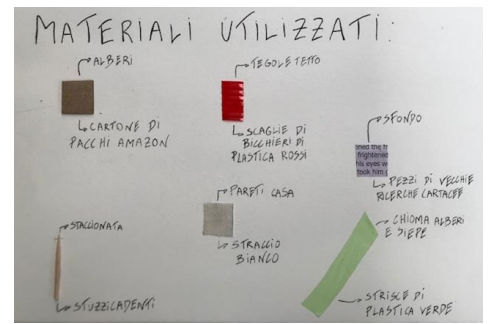 MATERIALI UTILIZZATI:
ALBERI
CARTONE DI
PACCHI AMAZON
TEGOLE TETTO
SCAGLIE DI
BICCHIERI DI
PLASTICA ROSSI
SFONDO
ned the fr
frightened
his eyes w
took him
PEZZI DI VECCHIE
RICERCHE CARTACEE
PARETI CASA
STRACCIO
BIANCO
STACCIONATA
STUZZICADENTI
CHIOMA ALBERI
E SIEPE
STRISCE DI
PLASTICA VERDE